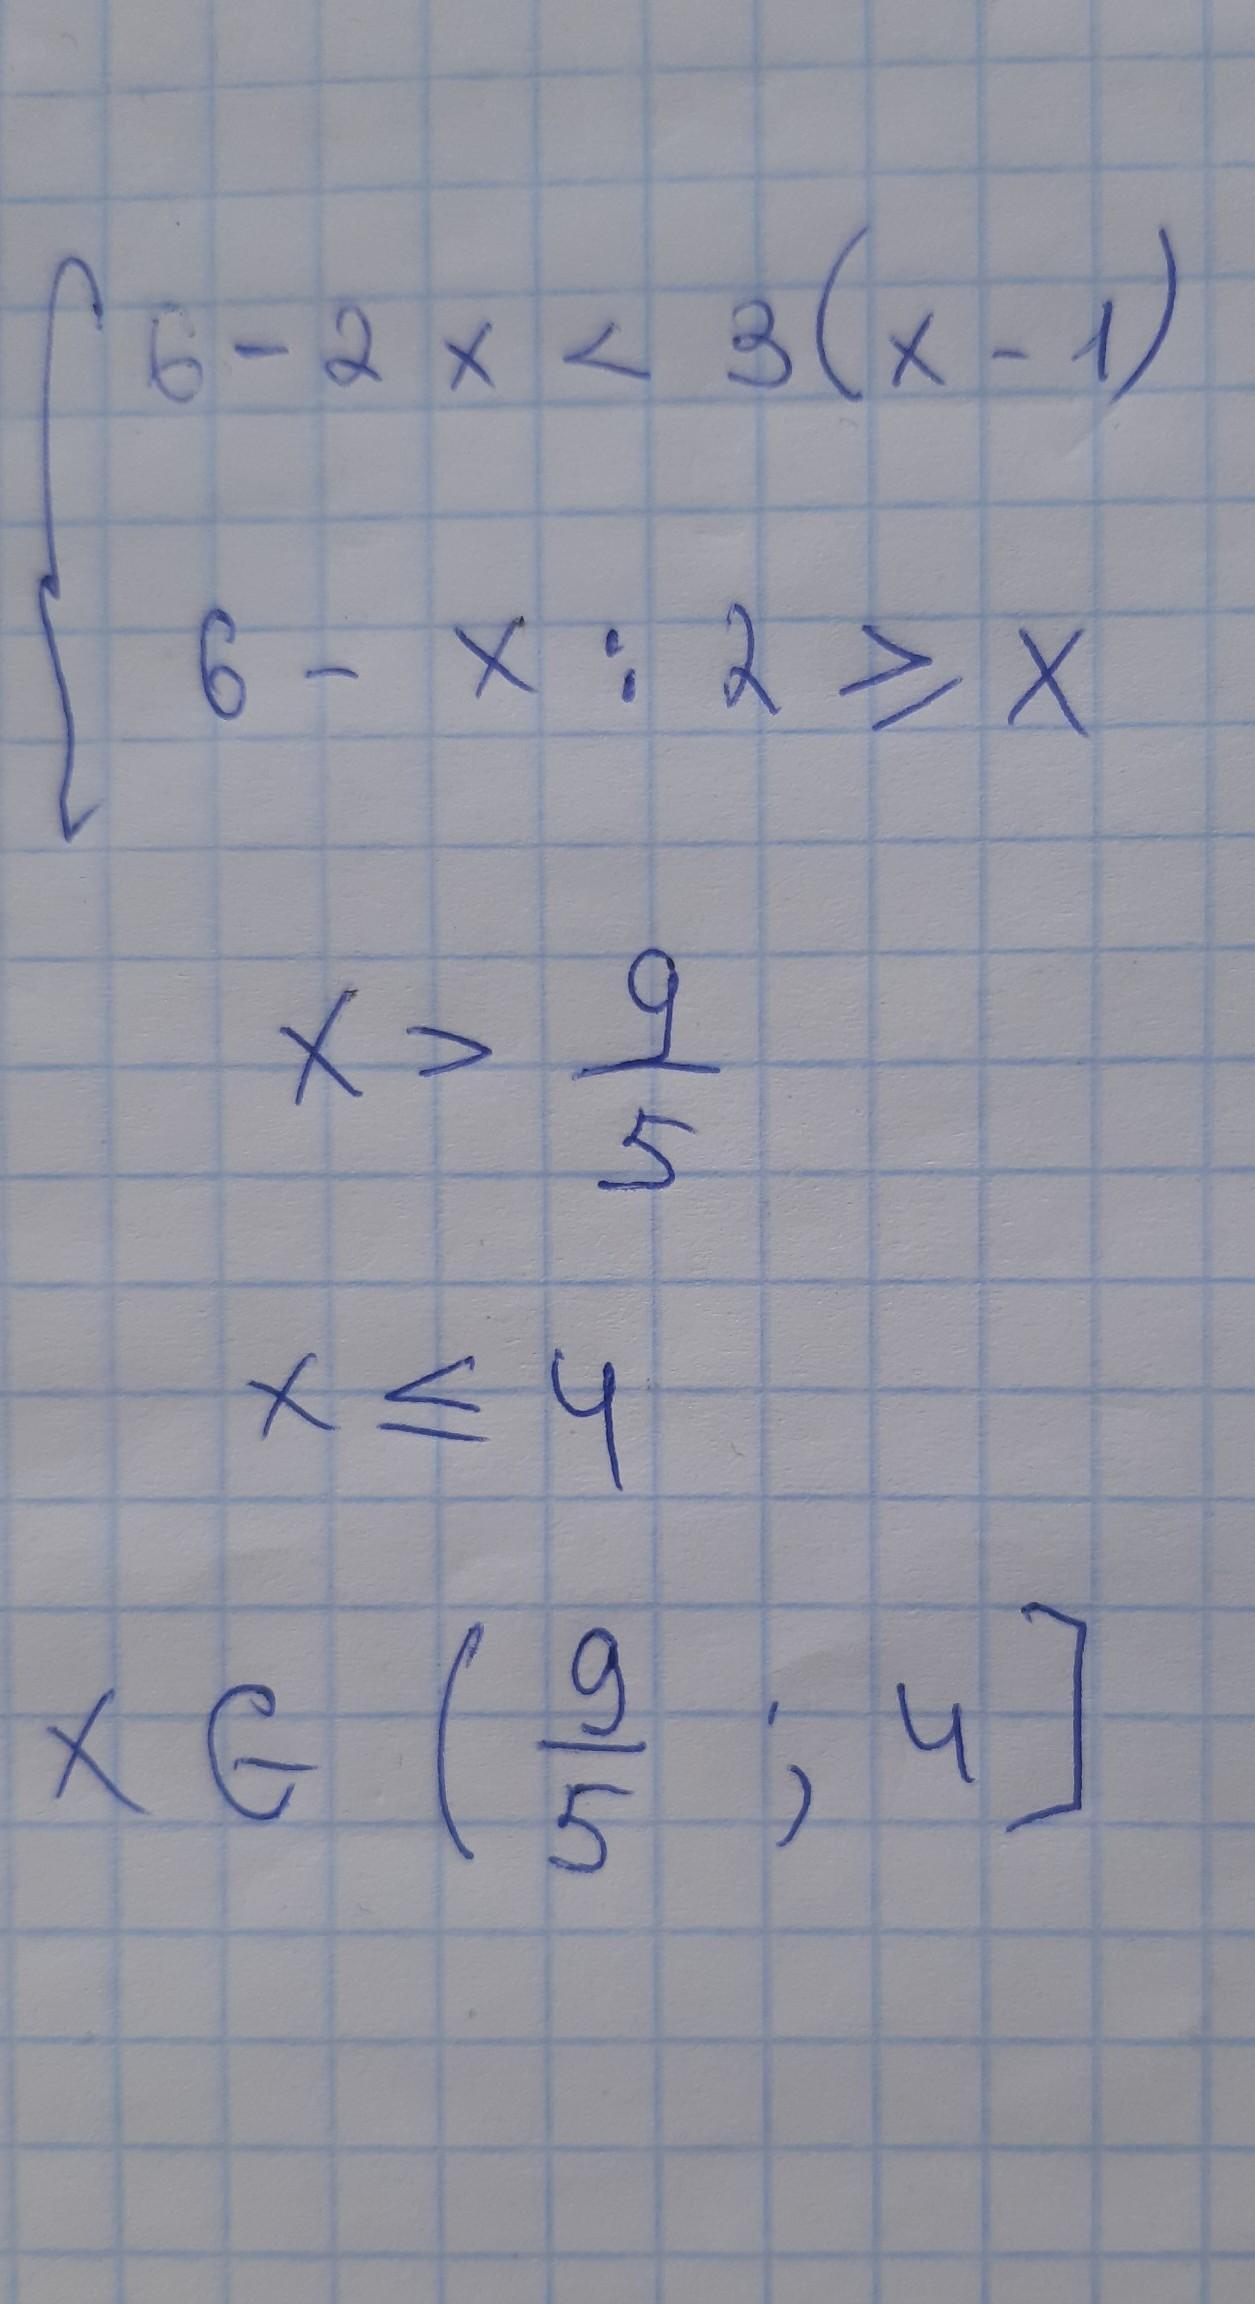 6 - 2x < 3(x - 1)
6 - x : 2 ⩾ x
x > 9/5
x ≤ 4
x ∈ (9/5 ; 4]